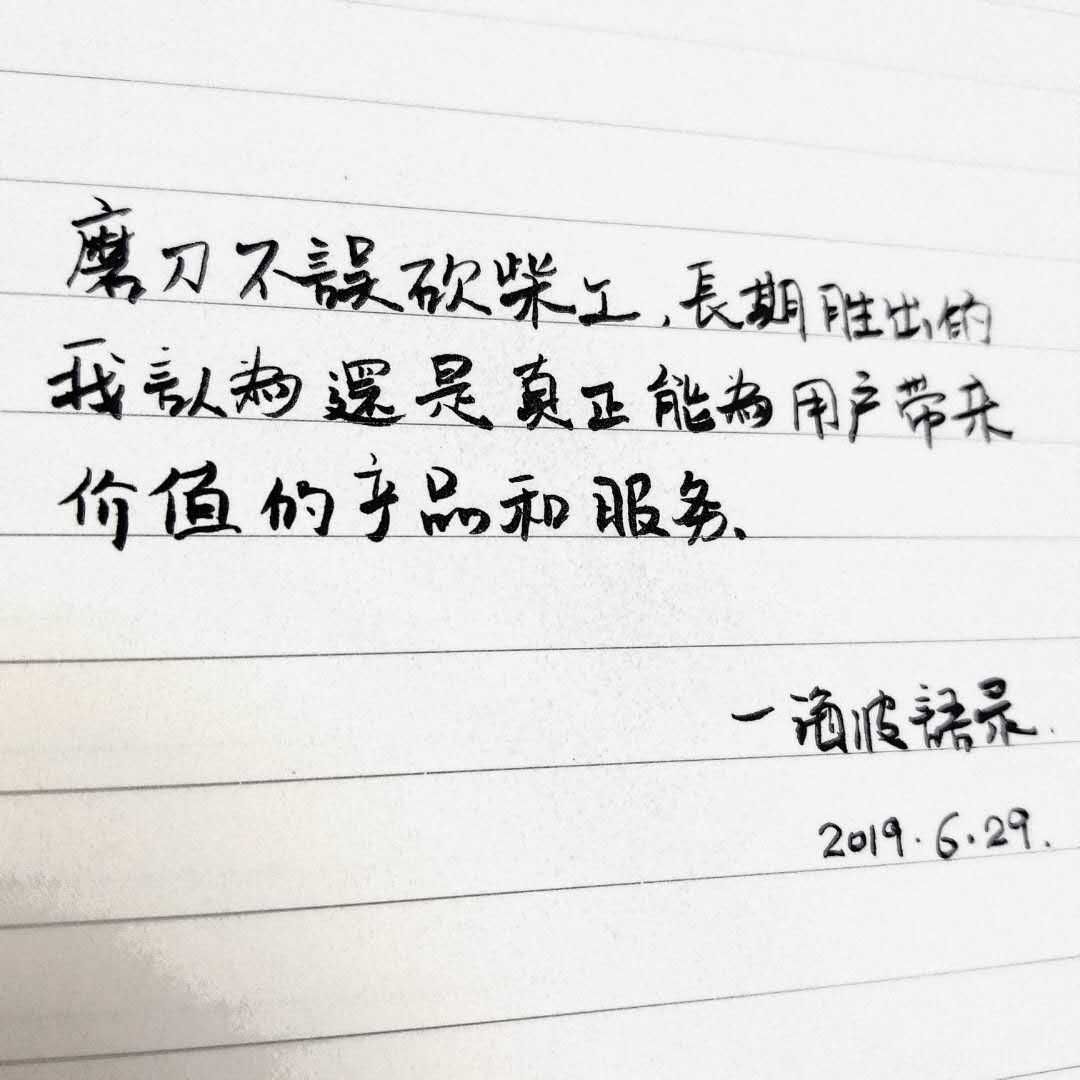 磨刀不誤砍柴工,長期胜出的
我認為還是真正能為用户带来
价值的产品和服务.
一海波語录.
2019.6.29.